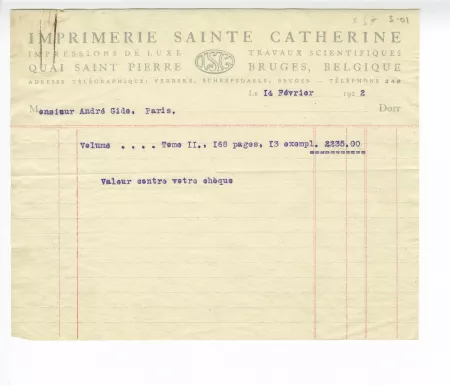 IMPRIMERIE SAINTE CATHERINE
IMPRESSIONS DE LUXE TRAVAUX SCIENTIFIQUES
QUAI SAINT PIERRE BRUGES, BELGIQUE
ADRESSE TÉLÉGRAPHIQUE: VERBEKE, SCHEEPSDAELE, BRUGES — TÉLÉPHONE 248
LE 14 Février 1922
Monsieur André Gide, Paris. Doit
Volume .... Tome II., 168 pages, 13 exempl. 2235.00
Valeur contre votre chèque